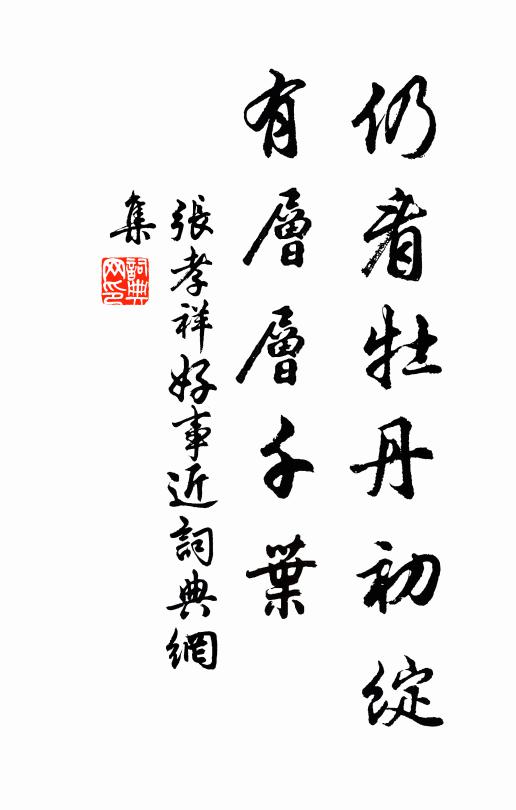 仍看牡丹初綻
有層層千葉
張孝祥好事近詞典網
集
詞典
网印